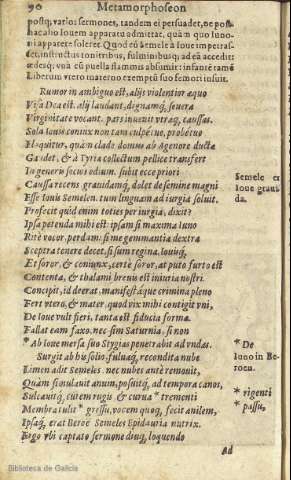 90 Metamorphoseon
postq; varios sermones, tandem ei persuadet, ne post
hac alio Iouem apparatu admittat, quàm quo Iuno-
ni apparere soleret. Quod cū Semele à Ioue impetras-
set, instructus tonitribus, fulminibusq; ad eū accedit
ædesq; vnà cū puella flammis absumit: infantē tamē
Liberum vtero maturno exemptū suo femori insuit.
Rumor in ambiguo est, alijs violentior æquo
Visa Dea est. alij laudant, dignamq; seuera
Virginitate vocant. pars inuenit vtraq; caussas.
Sola Iouis coniux non tam culpetue, probetue
Eloquitur, quàm clade domus ab Agenore ducta
Gaudet, & à Tyria collectum pellice transfert
In generis socios odium. subit ecce priori
Caussa recens, grauidamq; dolet de semine magni
Esse Iouis Semelen. tum linguam ad iurgia soluit.
Profeci quid enim toties per iurgia, dixit?
Ipsa petenda mihi est: ipsam si maxima Iuno
Ritè vocor, perdam: si me gemmantia dextra
Sceptra tenere decet, si sum regina, Iouisq;
Et soror, & coniunx, certè soror. at puto furto est
Contenta, & thalami breuis est iniuria nostri.
Concipit, id deerat. manifestaq; crimina pleno
Fert vtero, & mater, quod vix mihi contigit vni,
De Ioue vult fieri, tanta est fiducia formæ.
Fallat eam faxo. nec sim Saturnia, si non
* Ab Ioue mersa suo Stygias penetrabit ad vndas.
Surgit ab his solio, fuluaq; recondita nube
Limen adit Semeles. nec nubes antè remouit,
Quàm simulauit anum, posuitq; ad tempora canos,
Sulcauitq; cutem rugis & curua * trementi
Membra tulit * gressu, vocem quoq; fecit anilem,
Ipsaq; erat Beroë Semeles Epidauria nutrix.
Ergo vbi captato sermone diuq; loquendo
Ad
Semele ex
Ioue graui-
da.
* De
Iuno in Be-
roen.
* rigenti
* passu,
Biblioteca de Galicia